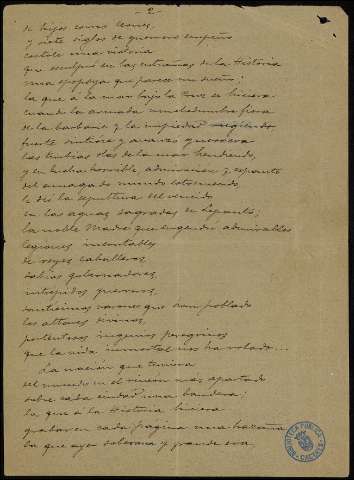 - 2 -
de hijos como leones,
y siete siglos de guerrero empeño
costole una victoria
que esculpió en las entrañas de la Historia
una epopeya que parece un sueño;
la que á la mar bajo la
cuando la armada muchedumbre fiera
de la barbarie y la impiedad rugiendo
fuerte
las turbias olas de la mar hendiendo,
y en lucha horrible, admiración y espanto
del amagado mundo
le dió la sepultura del vencido
en las aguas sagradas de Lepanto;
la noble Madre que engendró admirables
legiones incontables
de reyes caballeros,
sabios gobernadores,
intrépidos guerreros,
santísimos varones que han poblado
los altares divinos,
portentosos ingenios peregrinos
que la vida inmortal nos han robado...
La nación que tuviera
del mundo en el rincón más apartado
sobre cada ciudad una bandera;
la que á la Historia hiciera
grabar en cada página una hazaña
la que ayer soberana y grande era,
BIBLIOTECA PUBLICA
CACERES